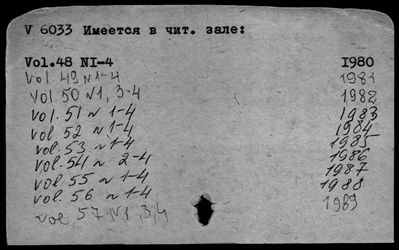 V 6033 Имеется в чит. зале:
Vol.48 NI-4 I980
Vol.49 N1-4 1981
Vol.50 N1, 3-4 1982
vol.51 N 1-4 1983
vol 52 N 1-4 1984
vol.53 N 1-4 1985
vol.54 N 2-4 1986
vol.55 N 1-4 1987
vol.56 N 1-4 1988
vol 57 N1,3,4 1989